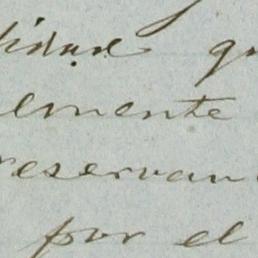 lidad qu
lmente
reservan
por el